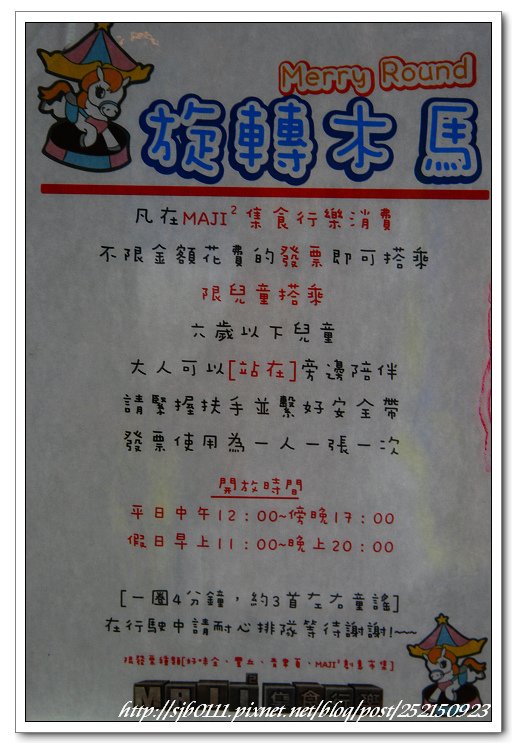 Merry Round
旋轉木馬
凡在MAJI²集食行樂消費
不限金額花費的發票即可搭乘
限兒童搭乘
六歲以下兒童
大人可以[站在]旁邊陪伴
請緊握扶手並繫好安全帶
發票使用為一人一張一次
開放時間
平日中午12：00~傍晚17：00
假日早上11：00~晚上20：00
[一圈4分鐘，約3首左右童謠]
在行駛中請耐心排隊等待謝謝!~~
MAJI 集食行樂
http://sjb0111.pixnet.net/blog/post/252150923